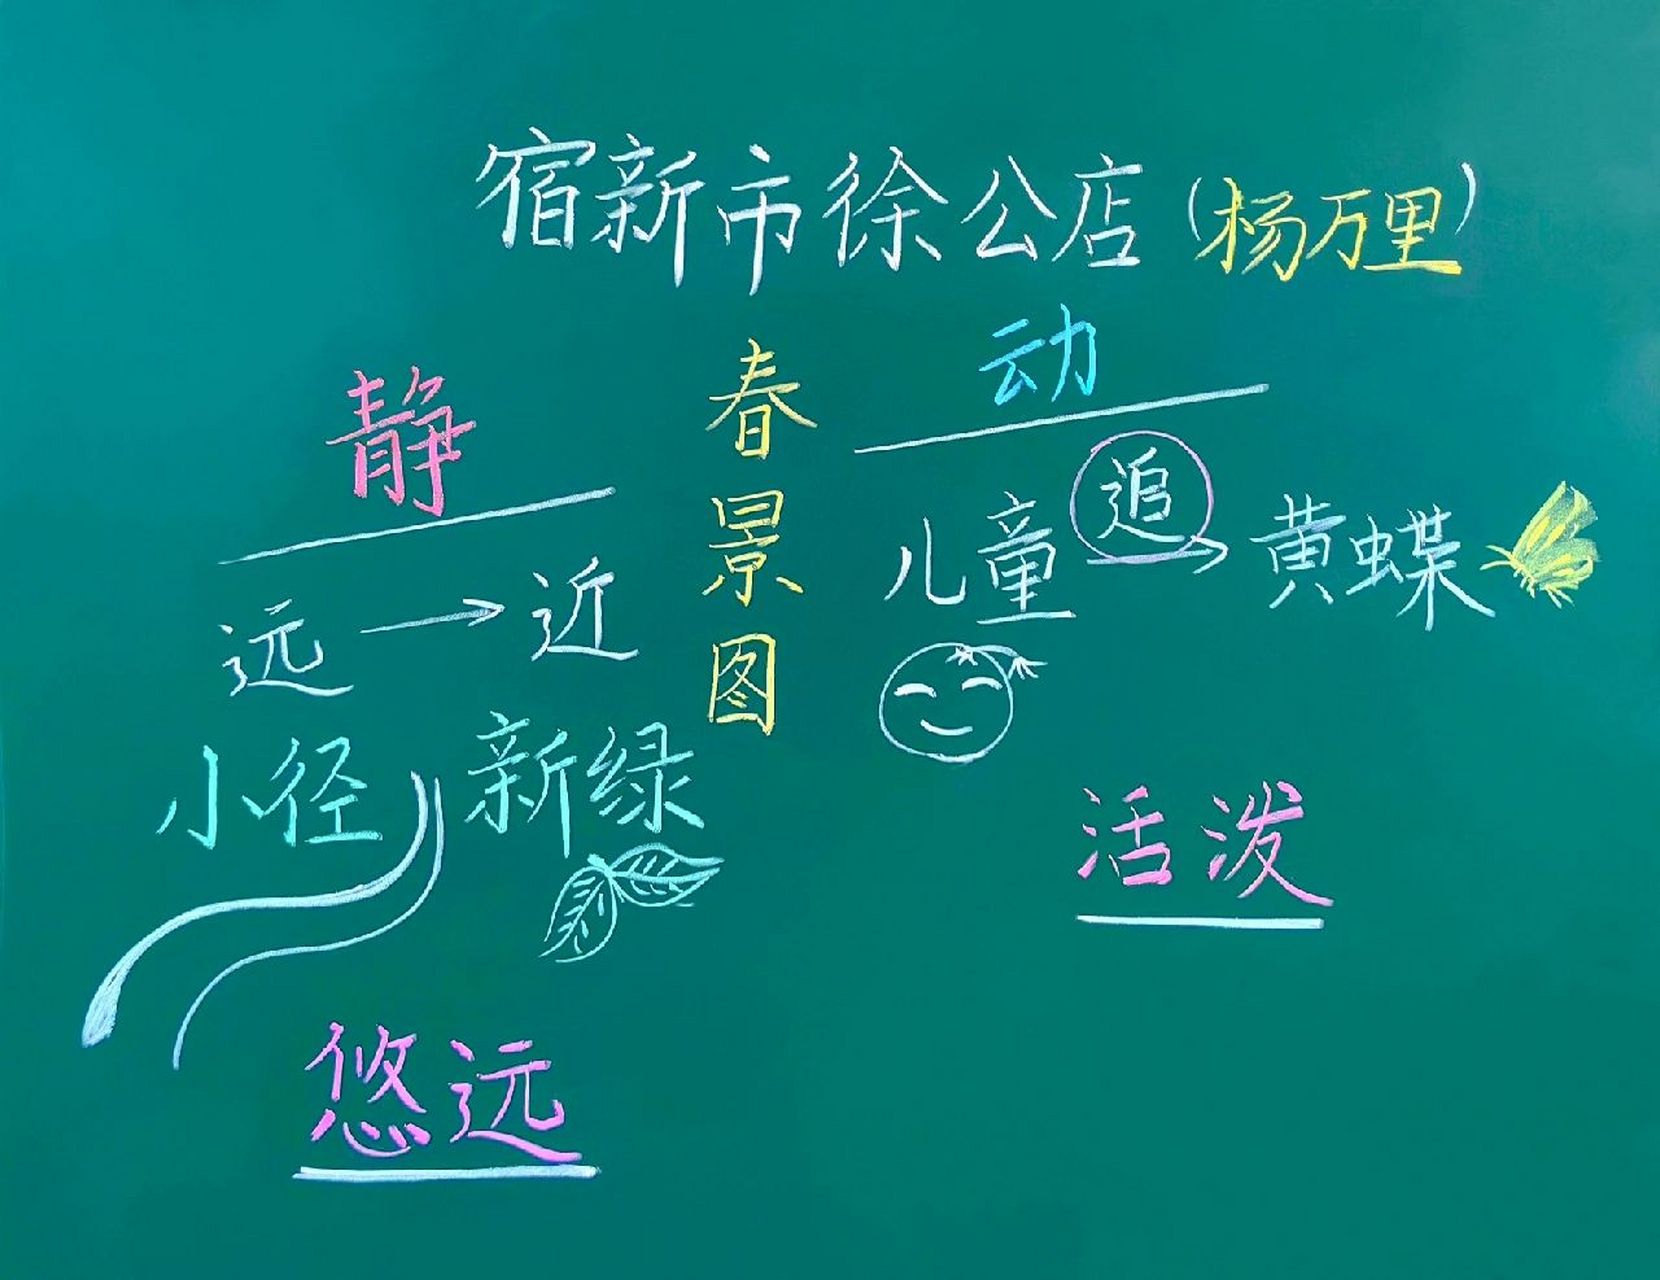 宿新市徐公店(杨万里)
春景图
静
远→近
小径 新绿
悠远
动
儿童 追→ 黄蝶
活泼